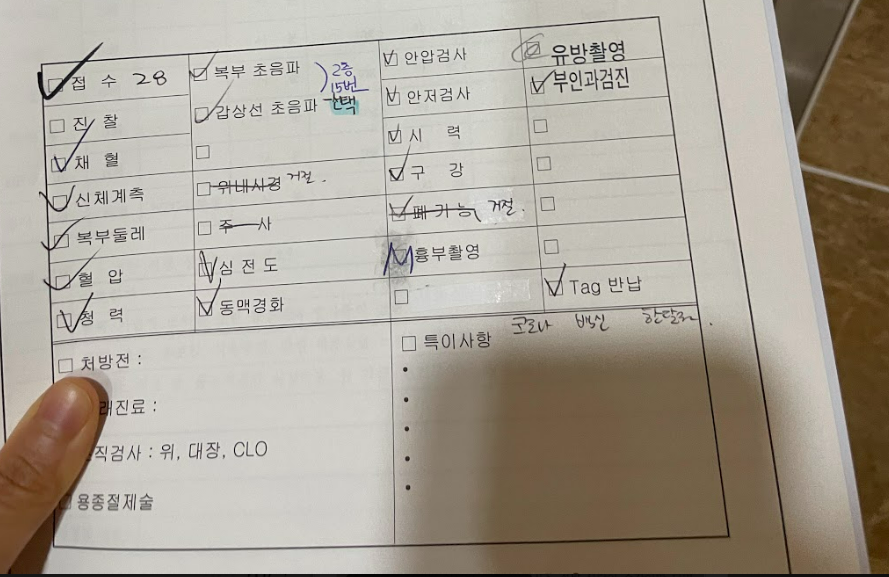 접 수 28
진 찰
채 혈
신체계측
복부둘레
혈 압
청 력
복부 초음파
갑상선 초음파
2층
15번
선택
위내시경 거절.
주 사
심 전 도
동맥경화
안압검사
안저검사
시 력
구 강
폐 기 능 거절.
흉부촬영
유방촬영
부인과검진
Tag 반납
처방전 :
래진료 :
직검사 : 위, 대장, CLO
용종절제술
특이사항
코로나 백신